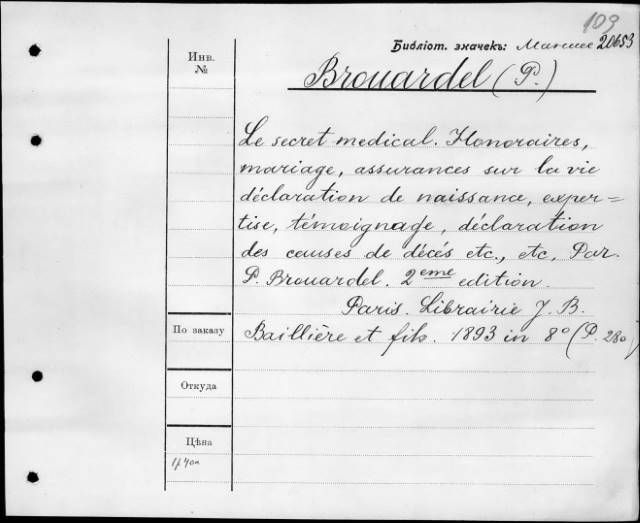 109
Библіот. значекъ: 20653
Инв.
№
Brouardel (P.)
Le secret medical. Honoraires,
mariage, assurances sur la vie
déclaration de naissance, exper=
tise, témoignage, déclaration
des causes de décés etc., etc. Par.
P. Brouardel. 2eme edition.
Paris. Librairie J. B.
Baillière et fils. 1893 in 8° (P. 280)
По заказу
Откуда
Цѣна